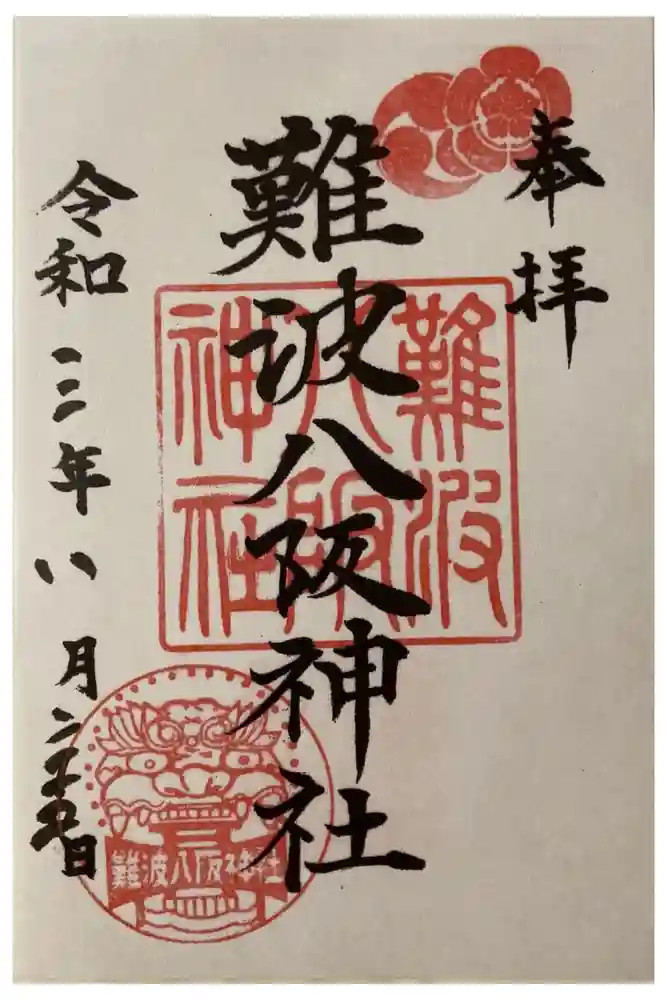 奉拝
難波八阪神社
令和三年八月二十五日
難波
八阪
神社
難波八阪神社